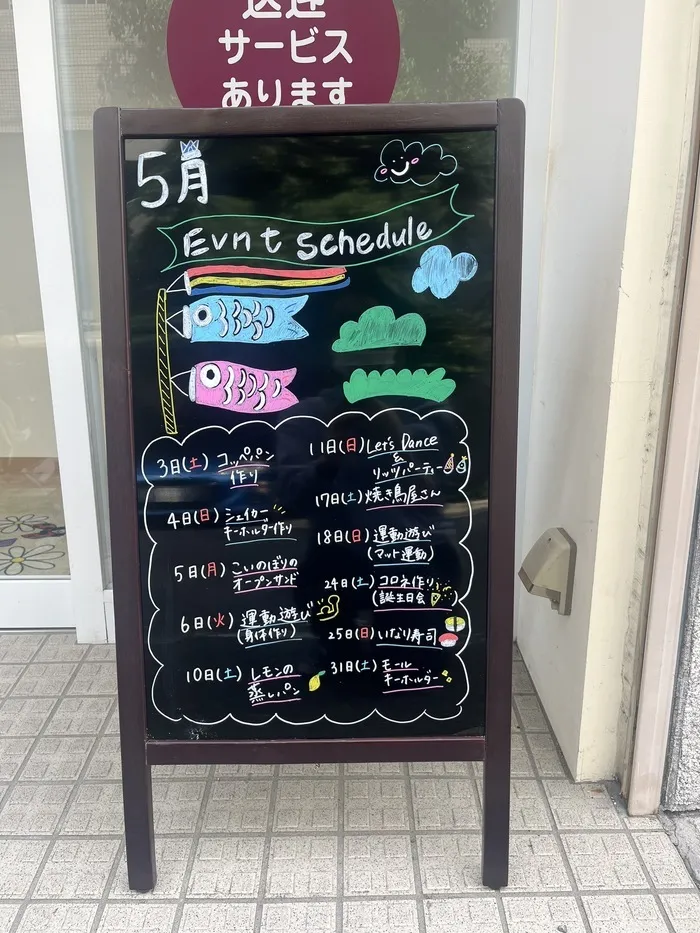 送迎
サービス
あります
5月
Evnt Schedule
3日(土) コッペパン
作り
4日(日) シェイカー
キーホルダー作り
5日(月) こいのぼりの
オープンサンド
6日(火) 運動遊び
(身体作り)
10日(土) レモンの
蒸しパン
11日(日) Let's Dance
&
リッツパーティー
17日(土) 焼き鳥屋さん
18日(日) 運動遊び
(マット運動)
24日(土) コロネ作り
(誕生日会)
25日(日) いなり寿司
31日(土) モール
キーホルダー